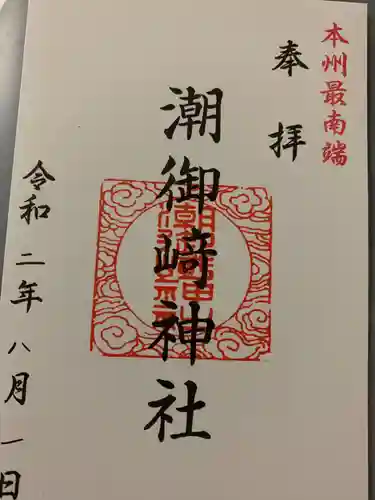 本州最南端
奉拝
潮御崎神社
令和二年八月一日